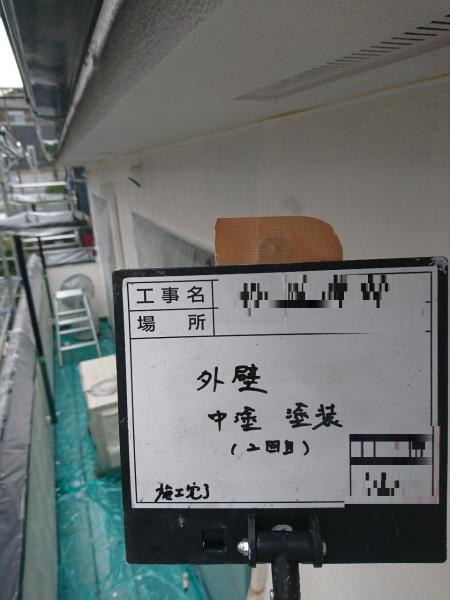 工事名
場所
外壁
中塗 塗装
(2回目)
施工完了